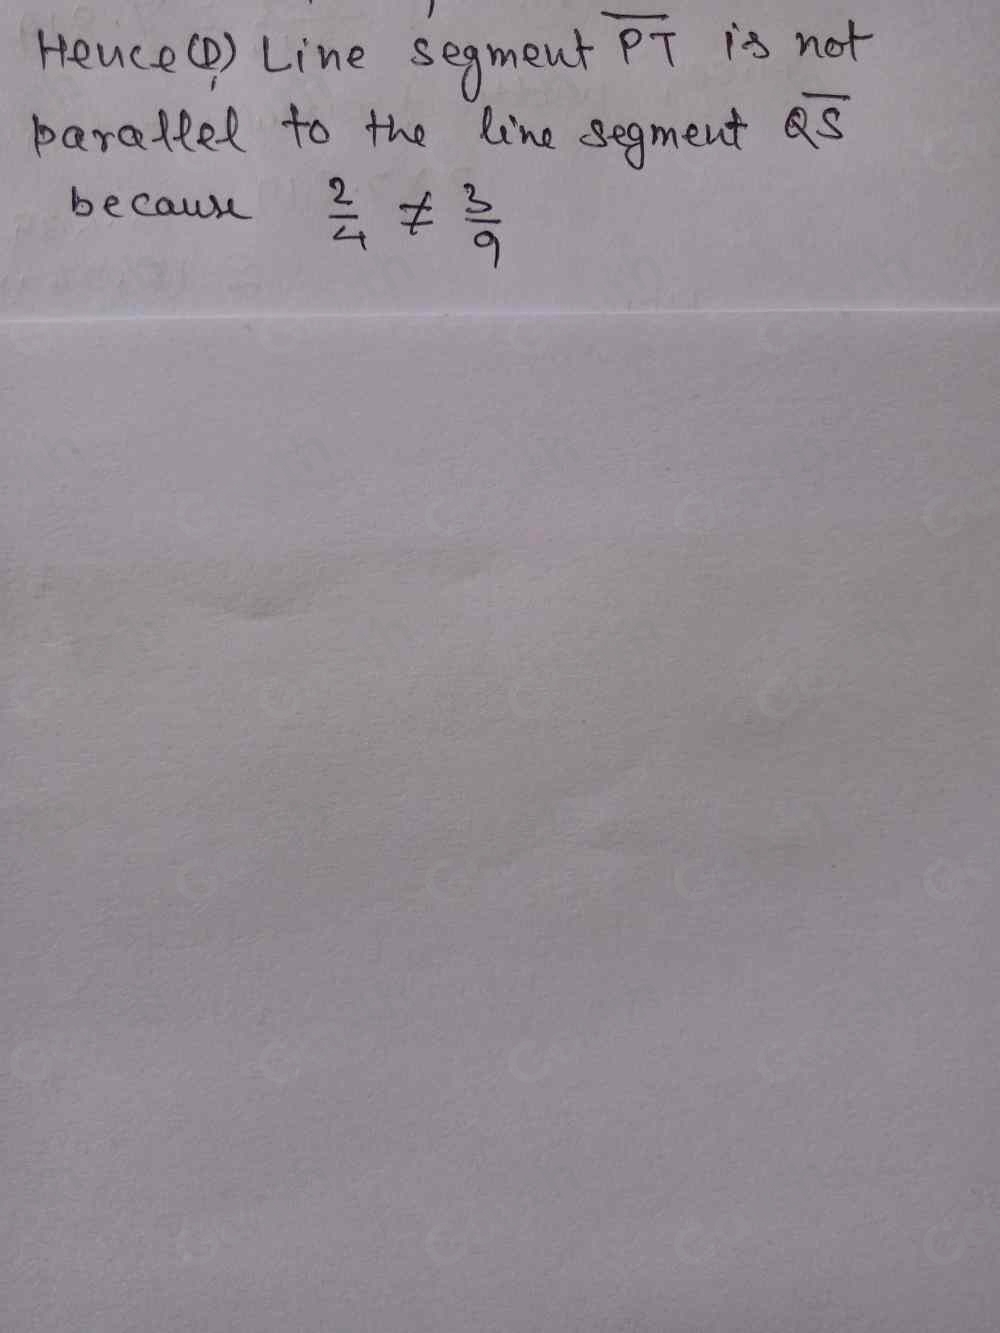 Hence (D) Line segment \overline{PT} is not
parallel to the line segment \overline{QS}
because \frac{2}{4} ≠ \frac{3}{9}